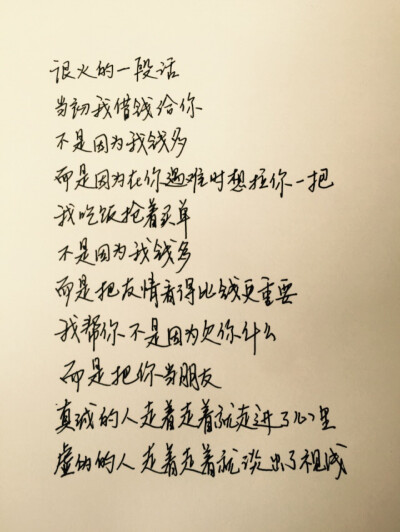 很火的一段话
当初我借钱给你
不是因为我钱多
而是因为在你遇难时想拉你一把
我吃饭抢着买单
不是因为我钱多
而是把友情看得比钱更重要
我帮你不是因为欠你什么
而是把你当朋友
真诚的人走着走着就走进了心里
虚伪的人走着走着就淡出了视线